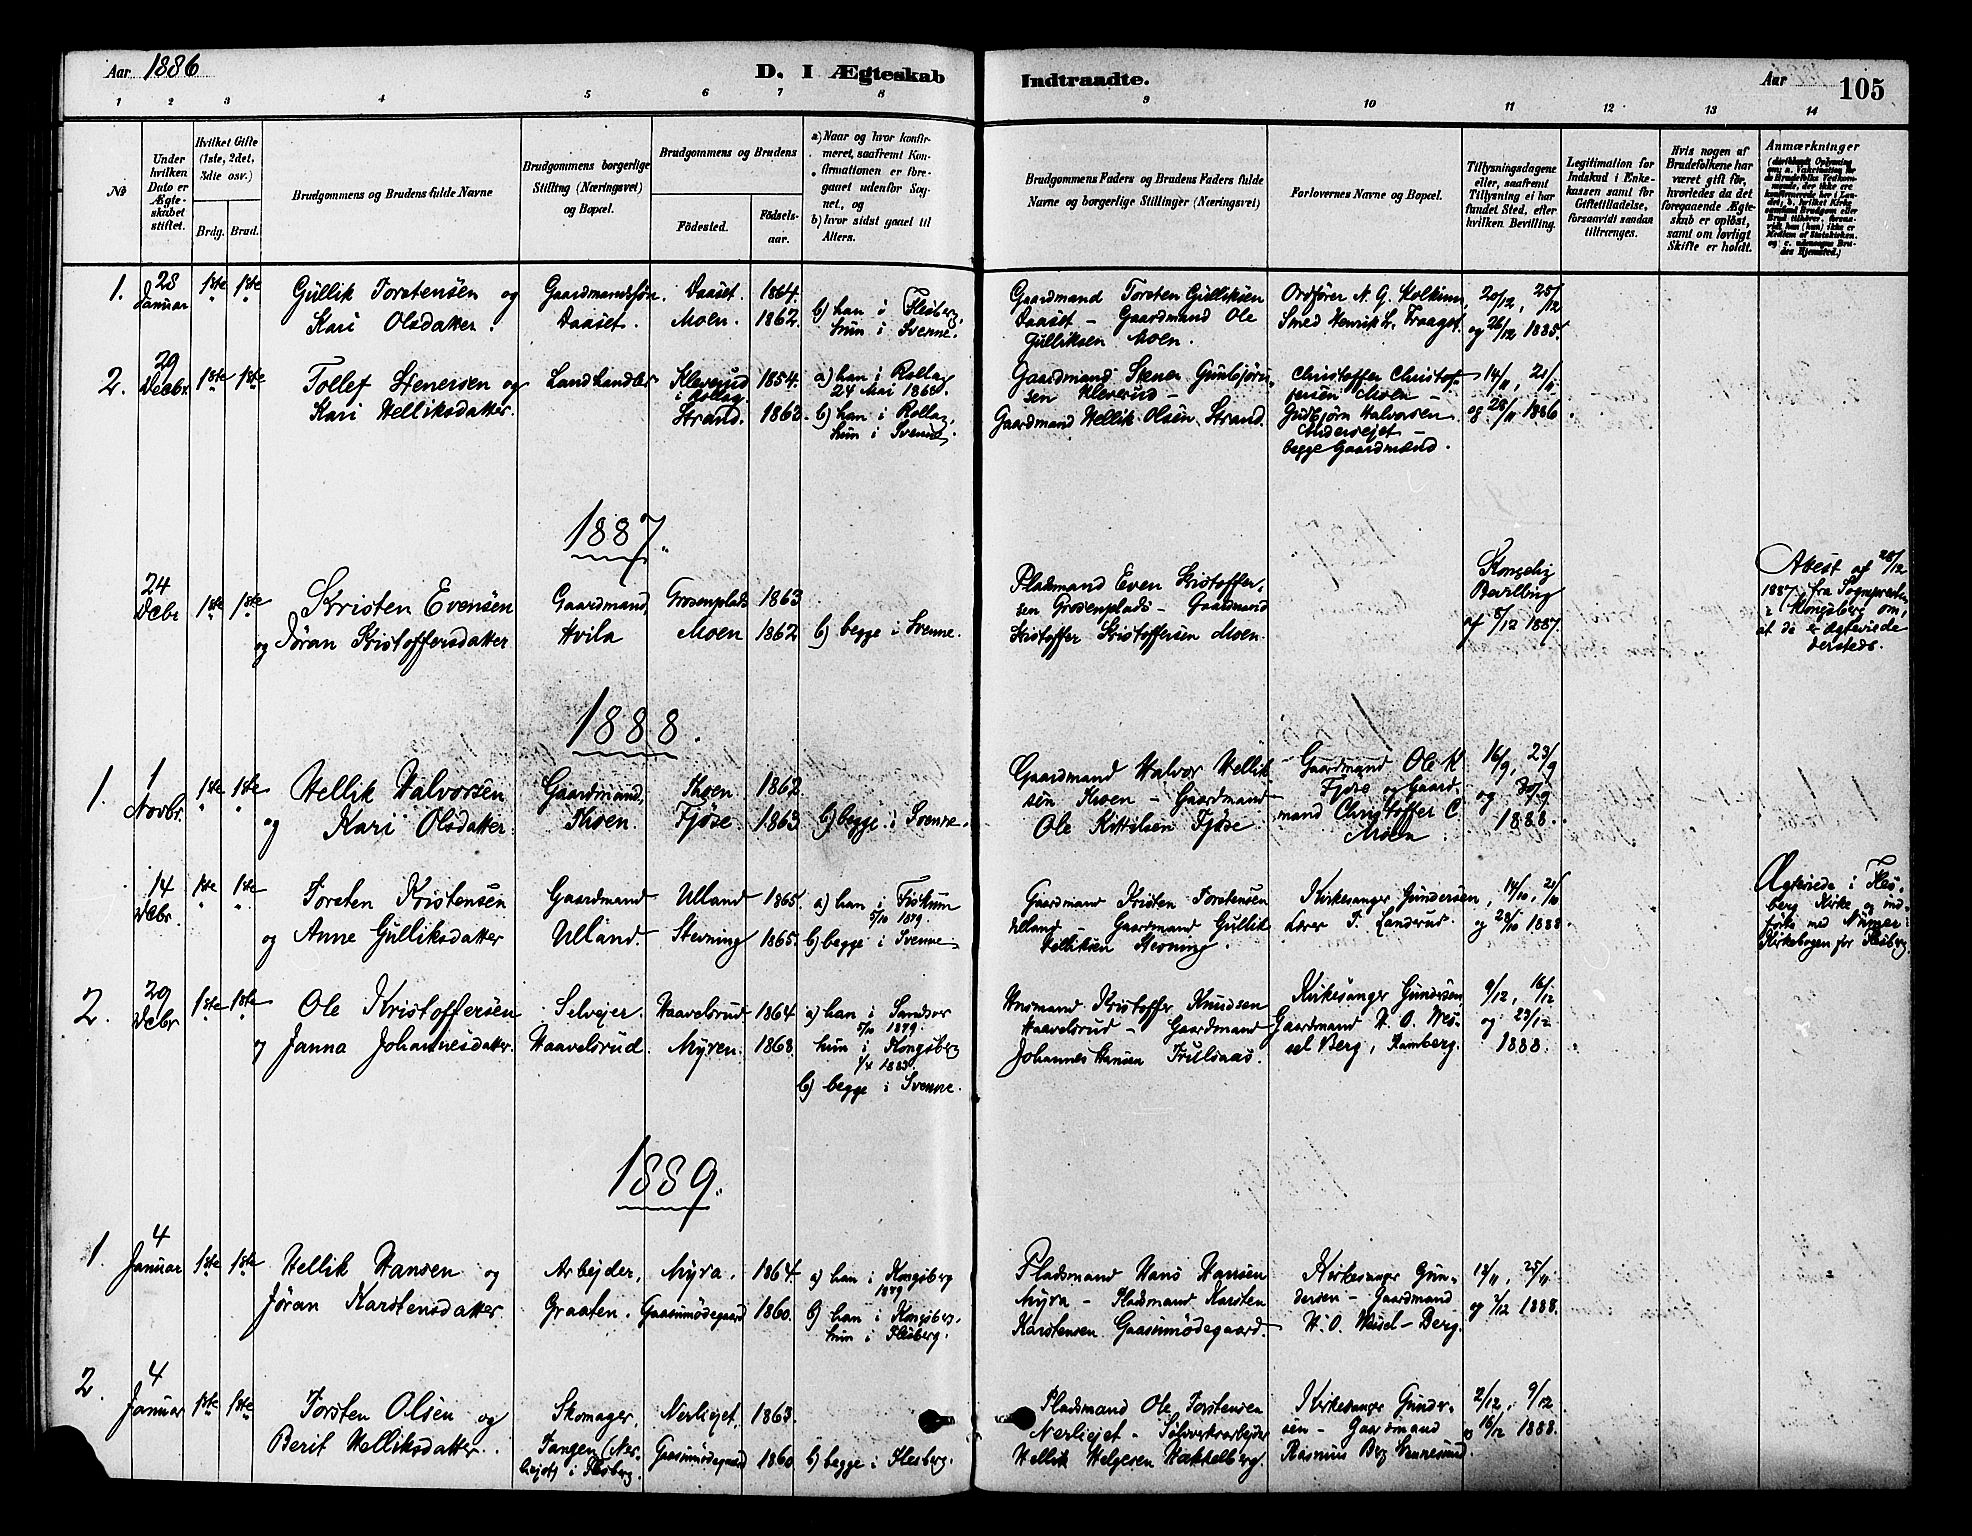 Aar 1886
D. I Ægteskab Indtraadte.
Aar 105
1 2 3 4 5 6 7 8 9 10 11 12 13 14
No
Under hvilken Dato er Ægteskabet stiftet.
Hvilket Gifte (1ste, 2det, 3die osv.)
Brdg. Brud.
Brudgommens og Brudens fulde Navne
Brudgommens borgerlige Stilling (Næringsvei) og Bopæl.
Brudgommens og Brudens
Fødested. Fødselsaar.
a) Naar og hvor konfirmeret, saafremt Konfirmationen er foregaaet udenfor Sognet, og
b) hvor sidst gaaet til Alters.
Brudgommens Faders og Brudens Faders fulde Navne og borgerlige Stillinger (Næringsvei)
Forlovernes Navne og Bopæl.
Tillysningsdagene eller, saafremt Tillysning ei har fundet Sted, efter hvilken Bevilling.
Legitimation for Indskud i Enkekassen samt for Giftetilladelse, forsaavidt saadan tiltrænges.
Hvis nogen af Brudefolkene har været gift før, hvorledes da det foregaaende Ægteskab er opløst, samt om lovligt Skifte er holdt.
Anmærkninger
1. 28 Januar 1ste 1ste
Gullik Torstensen og
Kari Olsdatter.
Gaardmandssøn
Daaset.
Daaset. 1864.
Moen. 1862.
b) han i Flesberg,
hun i Svenne.
Gaardmand Torsten Gulliksen
Daaset - Gaardmand Ole
Gulliksen Moen.
Ordfører N. G.
Smed Henrik
20/12, 25/12
og 26/12 1885.
2. 29 Decbr 1ste 1ste
Tollef Stenersen og
Kari Helliksdatter.
Landhandler
Kleverud i Rollag 1854.
Strand. 1863.
a) han i Rollag
24 Mai 1868.
b) han i Rollag,
hun i Svenne.
Gaardmand Stener Gunbjørn-
sen Kleverud -
Gaardmand Hellik Olsen Strand.
Christoffer Christof-
fersen Moen -
Gudbjørn Halvorsen
begge Gaardmænd.
14/11, 21/11
og 28/11 1886.
1887.
24 Decbr 1ste 1ste
Kristen Evensen
og Jøran Kristoffersdatter
Gaardmand,
Hvila
Grosenplads 1863
Moen 1862
b) begge i Svenne.
Pladsmand Even Kristoffer-
sen Grosenplads - Gaardmand
Kristoffer Kristoffersen Moen.
Kongelig
Bevilling
af 8/12 1887.
Attest af 28/12
1887 fra Sognepresten
i Kongsberg om,
at de er ægteviede
dersteds.
1888.
1. 1 Novbr. 1ste 1ste
Hellik Halvorsen
og Kari Olsdatter
Gaardmand,
Kroen 1862
Fjøse. 1863
b) begge i Svenne.
Gaardmand Halvor Hellik-
sen - Gaardmand
Ole Kittilsen Fjøse.
Gaardmand Ole K
Fjøse og Gaard-
mand Christoffer C.
Moen
16/9, 23/9
og 30/9
1888.
14 Decbr. 1ste 1ste
Torsten Kristensen
og Anne Gulliksdatter
Gaardmand
Ulland.
Ulland 1865.
Stevning 1865.
a) han i Fiskum
5/10 1879.
b) begge i Svenne
Gaardmand Kristen Torstensen
Ulland - Gaardmand Gullik
Helliksen Stevning.
Kirkesanger Gundersen,
Lærer T. Landrud.
14/10, 21/10
og 28/10 1888.
Ægteviede i Fles-
berg Kirke og ind-
førte med Nummer i
Kirkebogen for Flesberg.
2. 29 Decbr 1ste 1ste
Ole Kristoffersen
og Janna Johannesdatter.
Selvejer.
Haavelsrud.
Haavelsrud 1864
Myren. 1868.
a) han i Sandsvær
5/10 1879.
hun i Kongsberg
1/4 1883.
b) begge i Svenne.
Husmand Kristoffer Knudsen
Haavelsrud - Gaardmand
Johannes Hansen Trulsaas.
Kirkesanger Gundersen
Gaardmand H. O. Wes-
sel Berg, Ramberg.
9/12, 16/12
og 23/12
1888.
1889.
1. 4 Januar 1ste 1ste
Hellik Hansen og
Jøran Karstensdatter
Arbejder,
Graaten.
Myra. 1864
Gaasumødegaard 1860.
a) han i Kongsberg
1879
b) han i Kongsberg.
hun i Flesberg.
Pladsmand Hans Hansen
Myra - Pladsmand Karsten
Karstensen Gaasumødegaard.
Kirkesanger Gun-
dersen - Gaardmand
H. O. Wessel-Berg.
18/11, 25/11
og 2/12 1888.
2. 4 Januar 1ste 1ste
Torsten Olsen og
Berit Helliksdatter.
Skomager,
Tangen (Ner-
liejet) i Flesberg.
Nerliejet. 1863.
Gaasumødegaard 1860
b) begge i Flesberg.
Pladsmand Ole Torstensen
Nerliejet - Sølvverksarbejder
Hellik Helgesen Hækkelberg.
Kirkesanger Gunder-
sen - Gaardmand
Rasmus Berg Vennesund.
2/12, 9/12
og 16/12 1888.